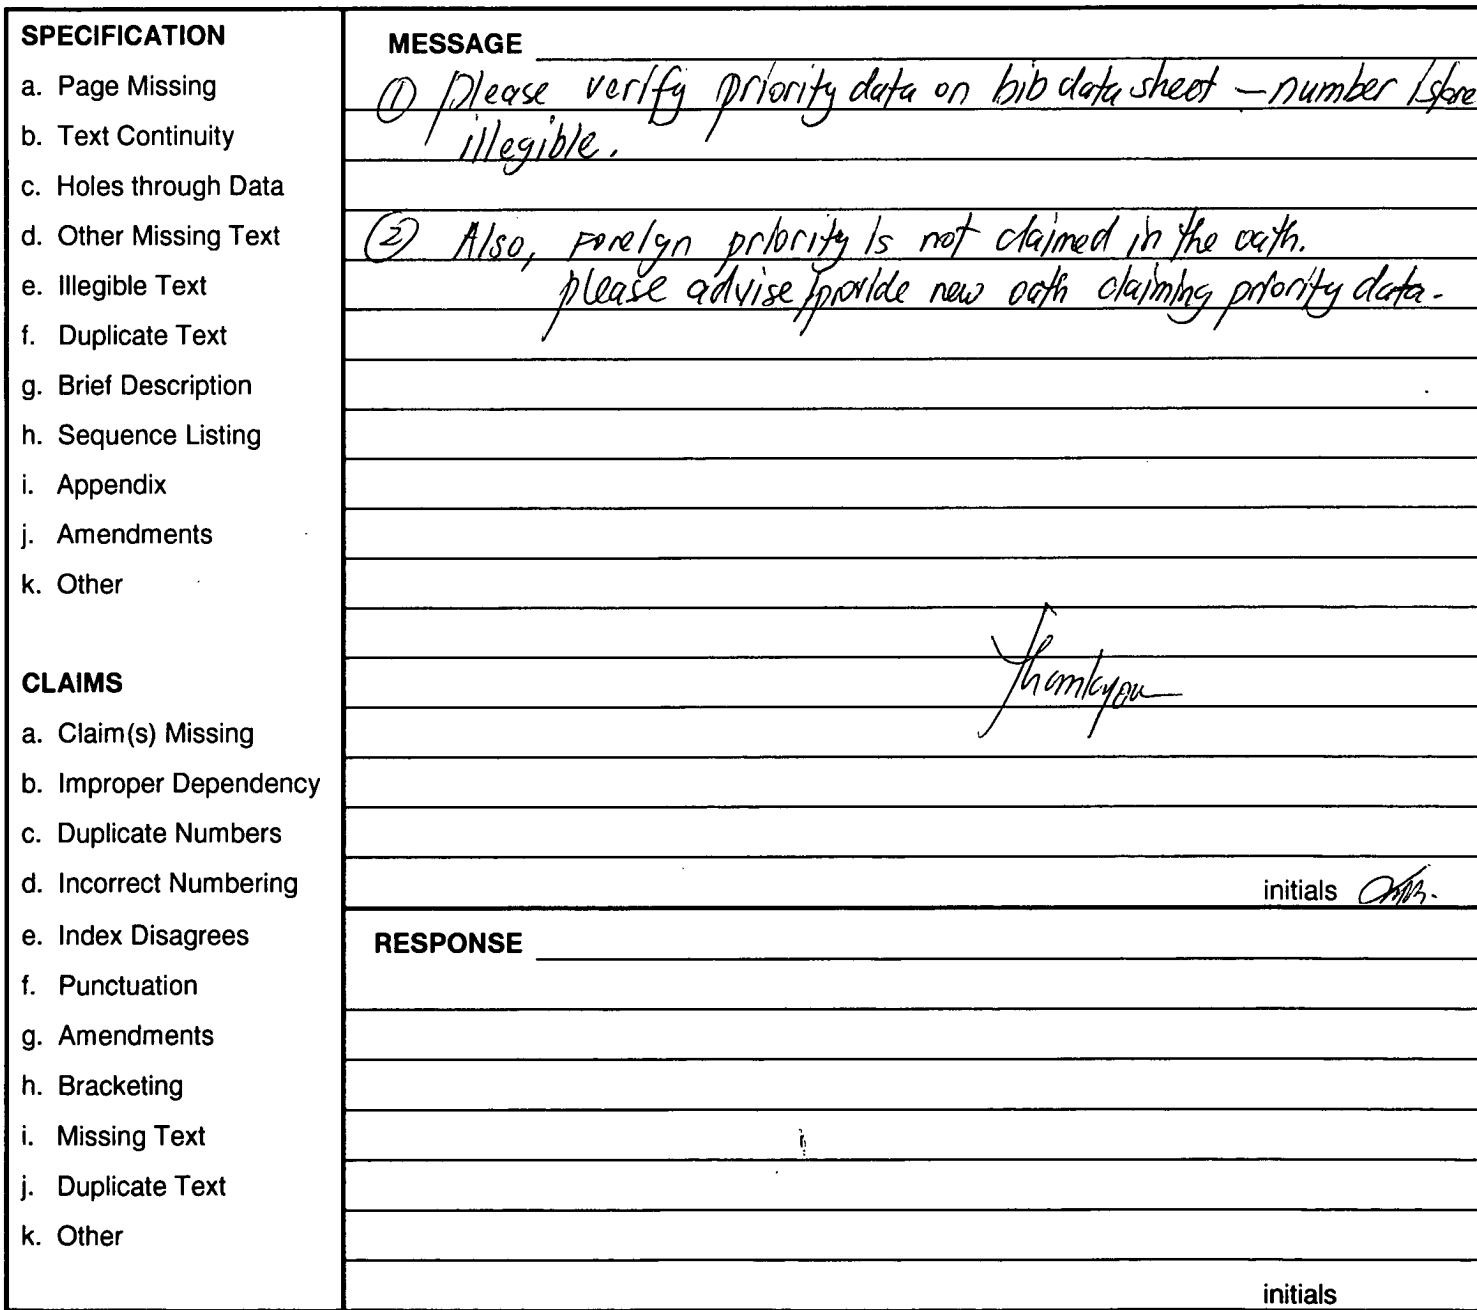 SPECIFICATION
a. Page Missing
b. Text Continuity
c. Holes through Data
d. Other Missing Text
e. Illegible Text
f. Duplicate Text
g. Brief Description
h. Sequence Listing
i. Appendix
j. Amendments
k. Other
CLAIMS
a. Claim(s) Missing
b. Improper Dependency
c. Duplicate Numbers
d. Incorrect Numbering
e. Index Disagrees
f. Punctuation
g. Amendments
h. Bracketing
i. Missing Text
j. Duplicate Text
k. Other
MESSAGE
① Please verify priority data on bib data sheet - number
illegible.
② Also, Foreign priority is not claimed in the oath.
please advise/provide new oath claiming priority data.
Thankyou
initials
RESPONSE
initials